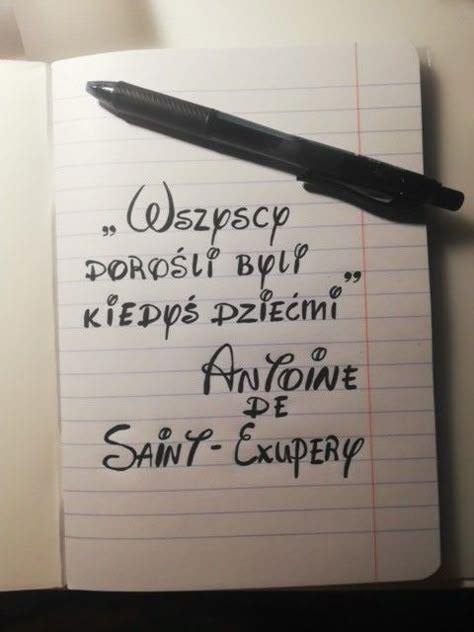 „Wszyscy
dorośli byli
kiedyś dziećmi”
Antoine
de
Saint-Exupery